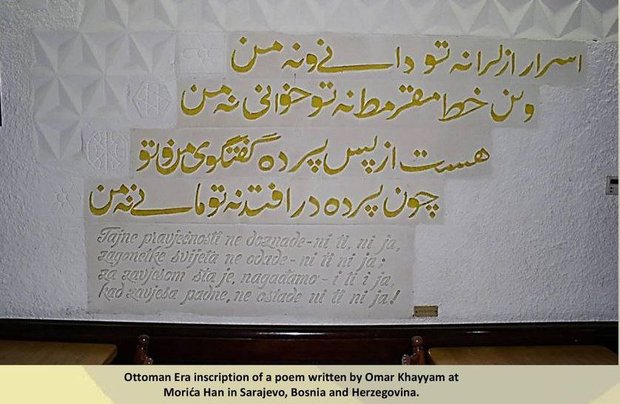 اسرار ازلرا نه تو دانے و نه من
وین خط مقرمط نه تو خوانی نه من
هست از پس پرده گفتگوی من و تو
چون پرده در افتد نه تو مانے نه من
Tajne pravječnosti ne doznade - ni ti, ni ja,
zagonetke svijeta ne odade - ni ti ni ja;
za zavjesom sta je, nagađamo - i ti i ja,
kad zavjesa padne, ne ostade ni ti ni ja!
Ottoman Era inscription of a poem written by Omar Khayyam at
Morića Han in Sarajevo, Bosnia and Herzegovina.